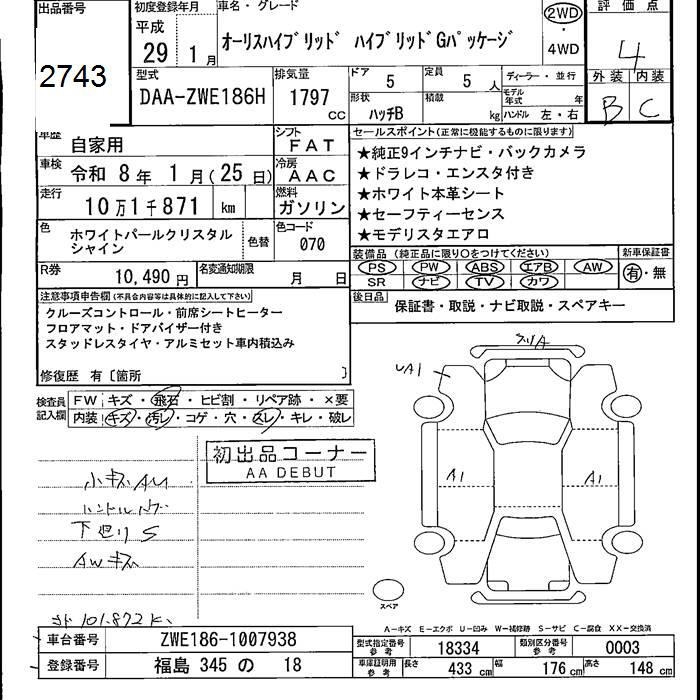 出品番号
2743
初度登録年月
平成
29年 1月
車名・グレード
オーリスハイブリッド ハイブリッドGパッケージ
2WD
・
4WD
評価点
4
外装 内装
B C
型式
DAA-ZWE186H
排気量
1797 cc
ドア 5
定員 5人
形状 ハッチB
積載 kg
ディーラー・並行
モデル年式 年
ハンドル 左・右
車歴 自家用
シフト FAT
車検 令和 8年 1月(25日)
冷房 AAC
走行 10万1千871 km
燃料 ガソリン
色 ホワイトパールクリスタルシャイン
色替
色コード 070
R券 10,490円
名変通知期限 月 日
セールスポイント(正常に機能するものに限ります)
★純正9インチナビ・バックカメラ
★ドラレコ・エンスタ付き
★ホワイト本革シート
★セーフティーセンス
★モデリスタエアロ
装備品 (純正品に限り○をつけてください)
新車保証書
PS PW ABS エアB AW
SR ナビ TV カワ
有・無
後日品 保証書・取説・ナビ取説・スペアキー
注意事項申告欄(不具合内容等は具体的に記入して下さい)
クルーズコントロール・前席シートヒーター
フロアマット・ドアバイザー付き
スタッドレスタイヤ・アルミセット車内積込み
修復歴 有〔箇所 〕
検査員記入欄
FW キズ・飛石・ヒビ割・リペア跡・×要
内装 キズ・汚レ・コゲ・穴・スレ・キレ・破レ
初出品コーナー
AA DEBUT
小キズAU
下廻りS
AWキズ
101.872K
UA1
A1
A1
スペア
A-キズ E-エクボ U-凹み W-補修跡 S-サビ C-腐食 XX-交換済
車台番号 ZWE186-1007938
登録番号 福島 345 の 18
型式指定番号 参考 18334
類別区分番号 参考 0003
車庫証明用 参考
長さ 433 cm
幅 176 cm
高さ 148 cm